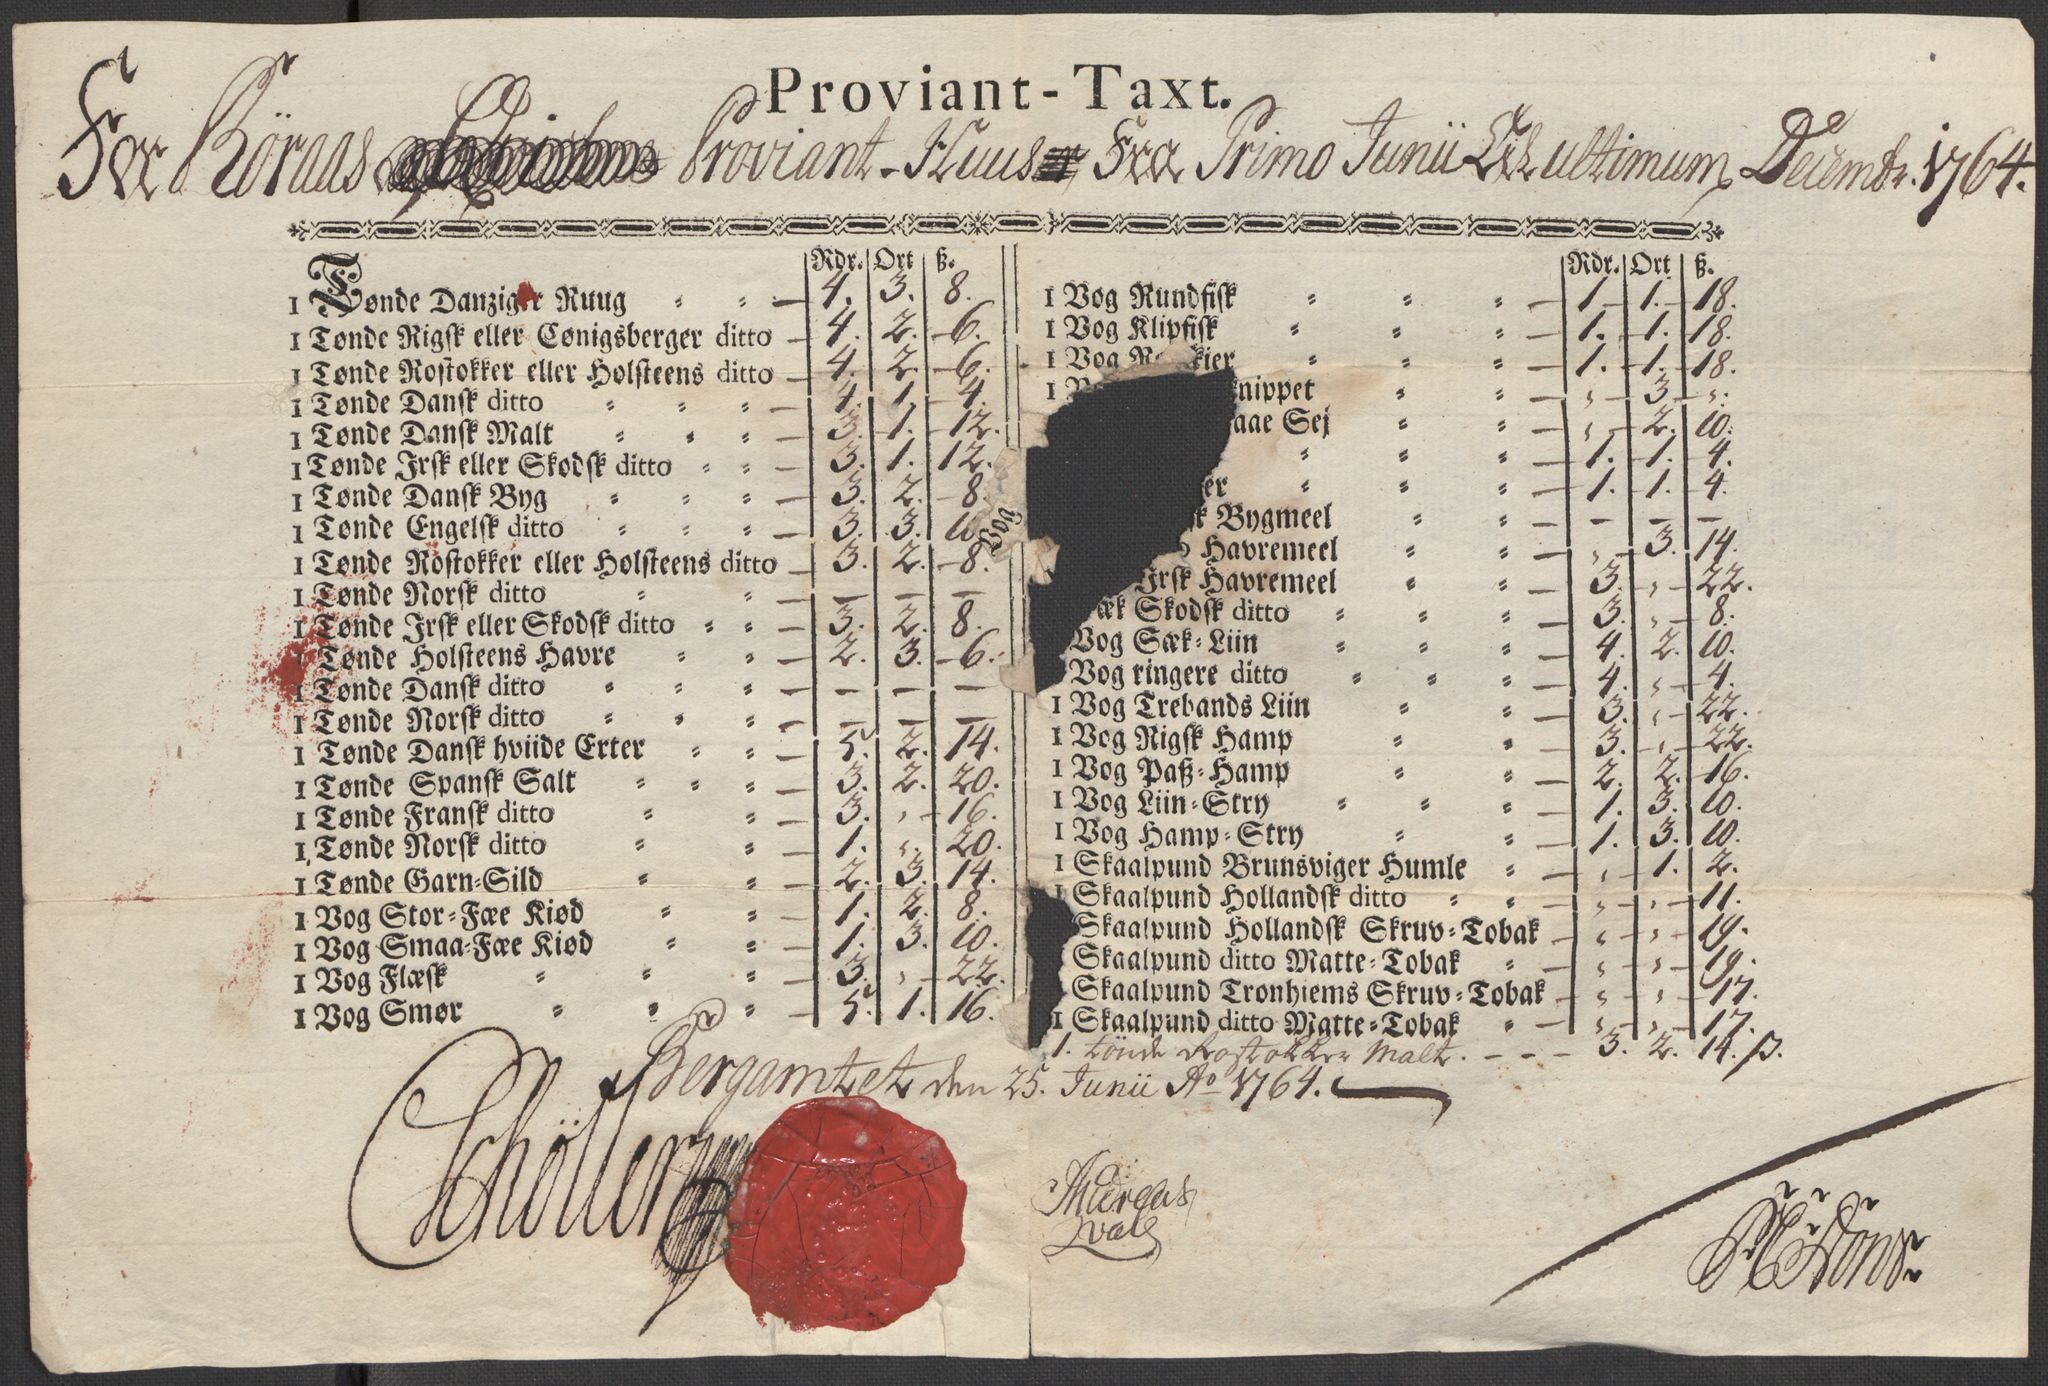 Proviant-Taxt.
For Röraas Proviant-Huus Fra Primo Junii til ultimum Decembr. 1764.
Rdr. Ort ß.
1 Tønde Danziger Ruug 4. 3. 8.
1 Tønde Rigsk eller Cønigsberger ditto 4. 2. 6.
1 Tønde Rostokker eller Holsteens ditto 4. 2. 6.
1 Tønde Dansk ditto 4. 1. 4.
1 Tønde Dansk Malt 3. 1. 12.
1 Tønde Irsk eller Skodsk ditto 3. 1. 12.
1 Tønde Dansk Byg 3. 2. 8.
1 Tønde Engelsk ditto 3. 3. 10.
1 Tønde Rostokker eller Holsteens ditto 3. 2. 8.
1 Tønde Norsk ditto — — —
1 Tønde Irsk eller Skodsk ditto 3. 2. 8.
1 Tønde Holsteens Havre 2. 3. 6.
1 Tønde Dansk ditto — — —
1 Tønde Norsk ditto — — —
1 Tønde Dansk hviide Erter 5. 2. 14.
1 Tønde Spansk Salt 3. 2. 20.
1 Tønde Fransk ditto 3. „ 16.
1 Tønde Norsk ditto 1. „ 20.
1 Tønde Garn-Sild 2. 3. 14.
1 Vog Stor-Fæe Kiød 1. 2. 8.
1 Vog Smaa-Fæe Kiød 1. 3. 10.
1 Vog Flæsk 3. „ 22.
1 Vog Smør 5. 1. 16.
Rdr. Ort ß.
1 Vog Rundfisk 1. 1. 18.
1 Vog Klipfisk 1. 1. 18.
1 Vog 1. 1. 18.
1 nippet „ 3. „
aae Sej „ 2. 10.
1. 1. 4.
er 1. 1. 4.
sk Bygmeel — — —
Havremeel „ 3. 14.
Irsk Havremeel 3. „ 22.
æk Skodsk ditto 3. „ 8.
Vog Sæk-Liin 4. 2. 10.
Vog ringere ditto 4. „ 4.
1 Vog Trebands Liin 3. „ 22.
1 Vog Rigsk Hamp 3. „ 22.
1 Vog Paß-Hamp 2. 2. 16.
1 Vog Liin-Stry 1. 3. 10.
1 Vog Hamp-Stry 1. 3. 10.
1 Skaalpund Brunsviger Humle „ 1. 2.
1 Skaalpund Hollandsk ditto „ „ 11.
Skaalpund Hollandsk Skruv-Tobak „ „ 19.
Skaalpund ditto Matte-Tobak „ „ 19.
Skaalpund Tronhiems Skruv-Tobak „ „ 17.
1 Skaalpund ditto Matte-Tobak „ „ 17.
1. tönde Rostokker Malt. - - - 3. 2. 14. ß.
Bergamtet den 25. Junii Ao 1764.
Schöller
Andreas